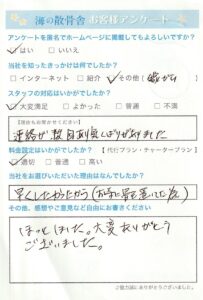 海の散骨舎 お客様アンケート
アンケートを匿名でホームページに掲載してもよろしいですか?
はい いいえ
当社を知ったきっかけは何でしたか?
インターネット 紹介 その他(
スタッフの対応はいかがでしたか?
大変満足 よかった 普通 不満
【理由もお聞かせください】
連絡が
ありました
料金設定はいかがでしたか?【代行プラン・チャータープラン】
適切 普通 高い
当社をお選びいただいた理由はなんでしたか?
早くしたかったから(お寺に
その他、感想やご意見など自由にお書きください
ほっとしました。大変ありがとう
ございました。
ご協力誠にありがとうございました。